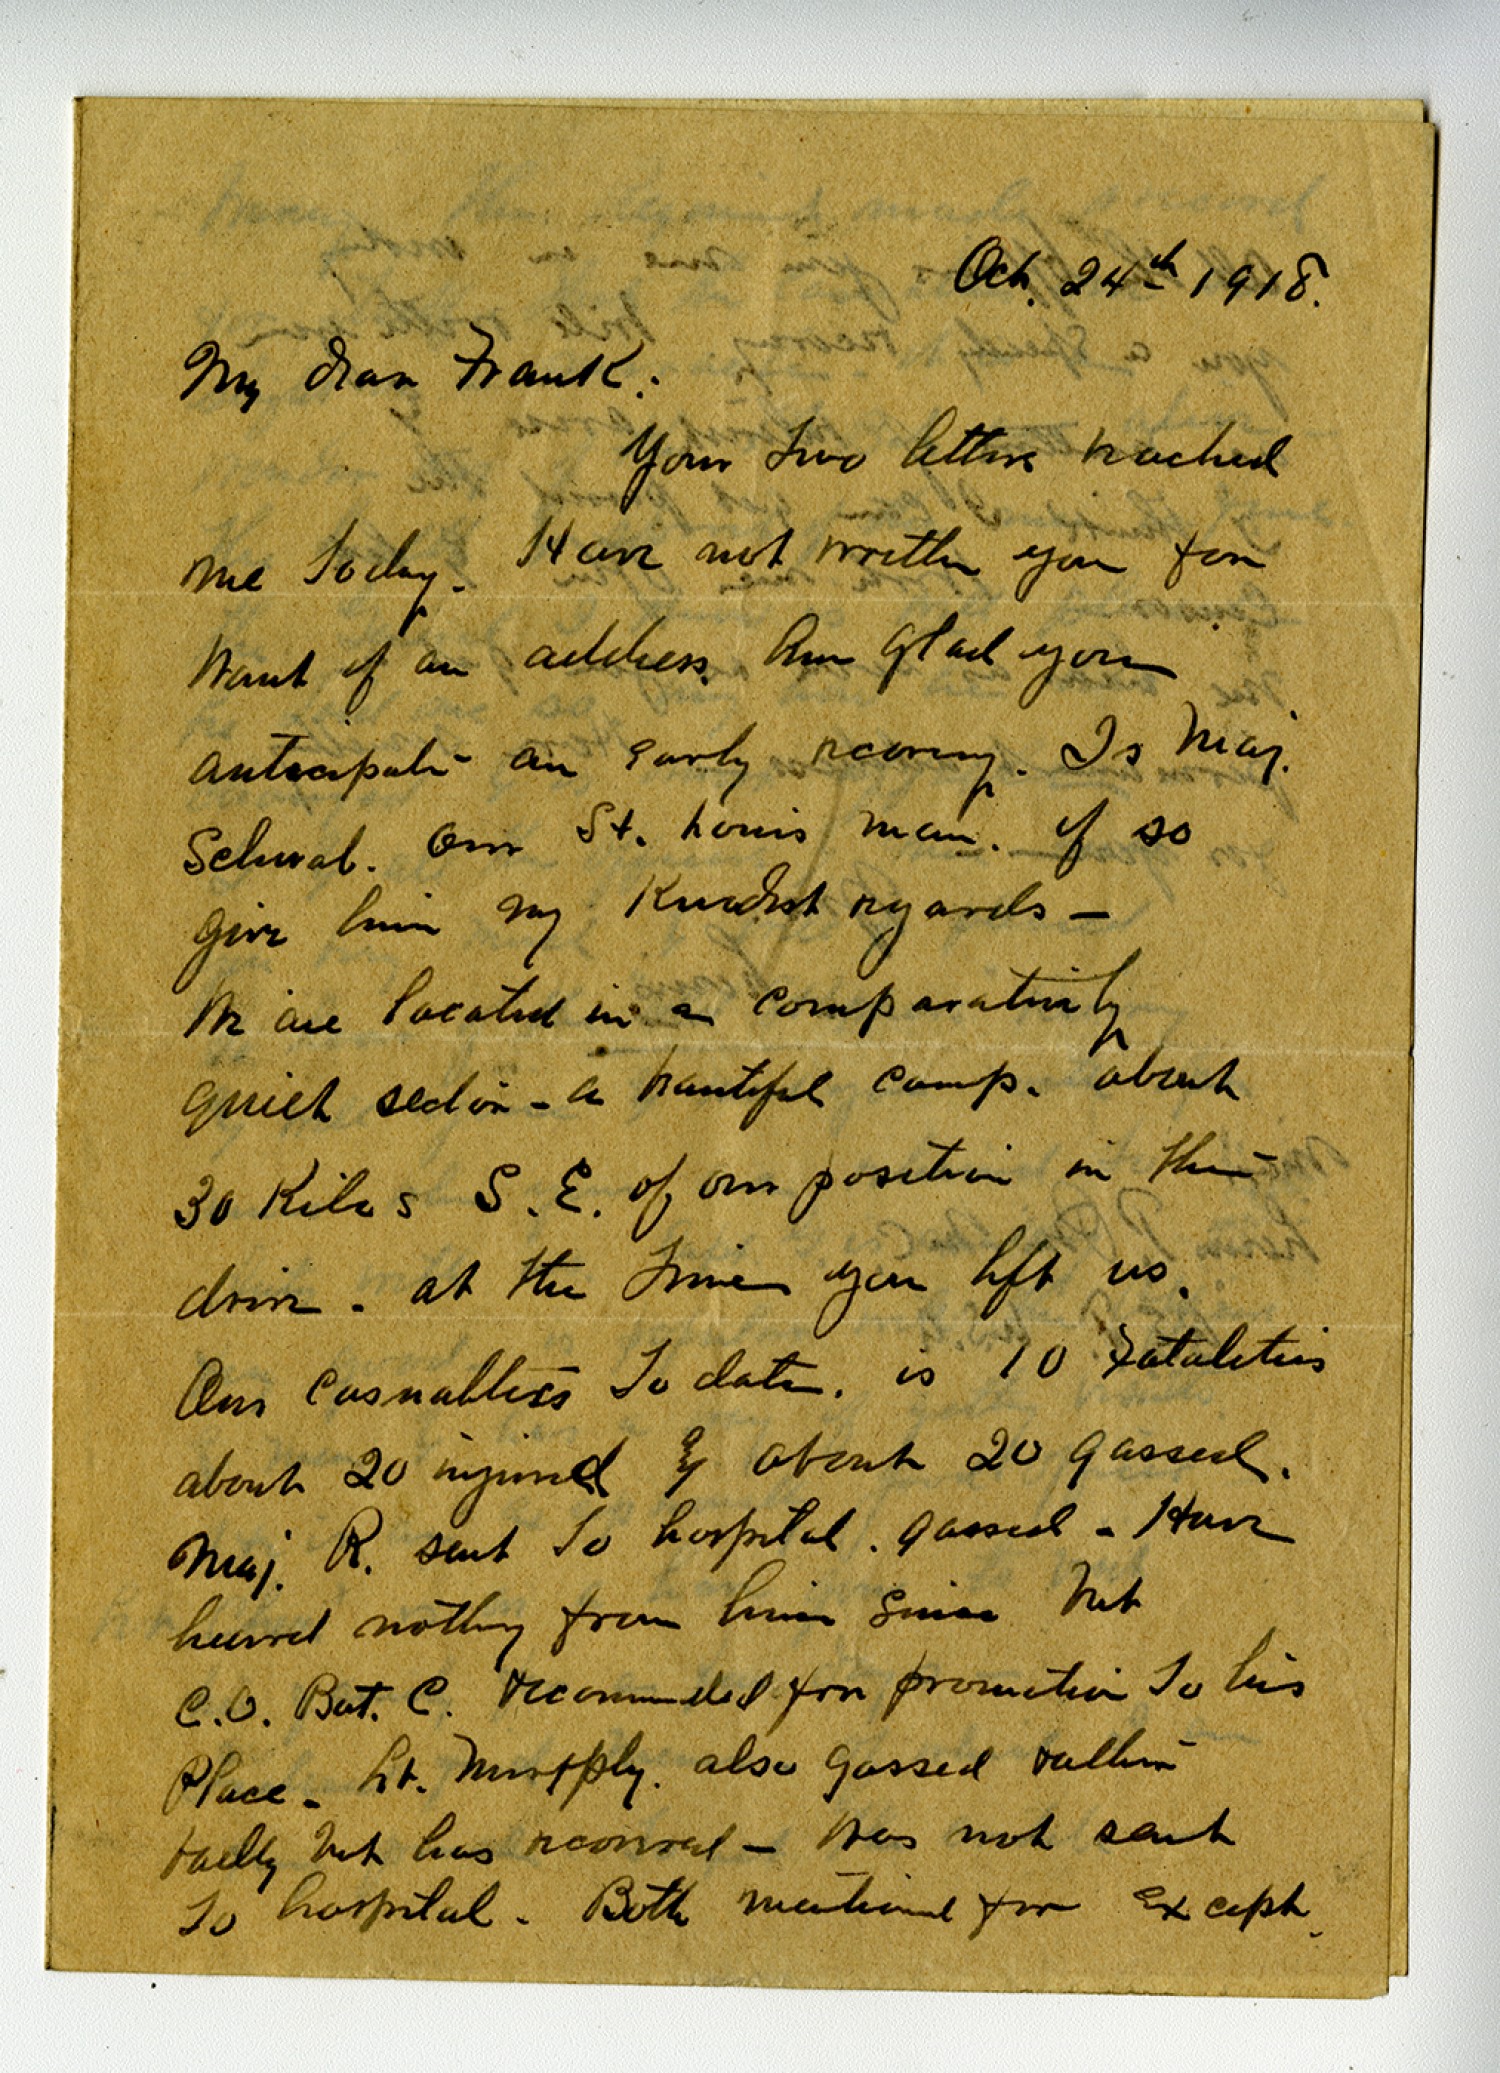 Oct. 24th 1918.
My dear Frank:
Your two letters reached
me today. Have not written you for
want of an address. Am glad you
anticipate an early recovery. Is Maj.
Schwab. our St. Louis man. if so
give him my Kindest regards –
We are located in a comparatively
quiet sector – a beautiful camp. about
30 Kilos S.E. of our position in the
drive. at the time you left us.
Our casualties to date. is 10 fatalities
about 20 injured & about 20 gassed.
Maj. R. sent to hospital. gassed – Have
heard nothing from him since but
C.O. Bat. C. recommended for promotion to his
Place – Lt. Murphy. also gassed rather
badly but has recovered – was not sent
to hospital. Both mentioned for except.